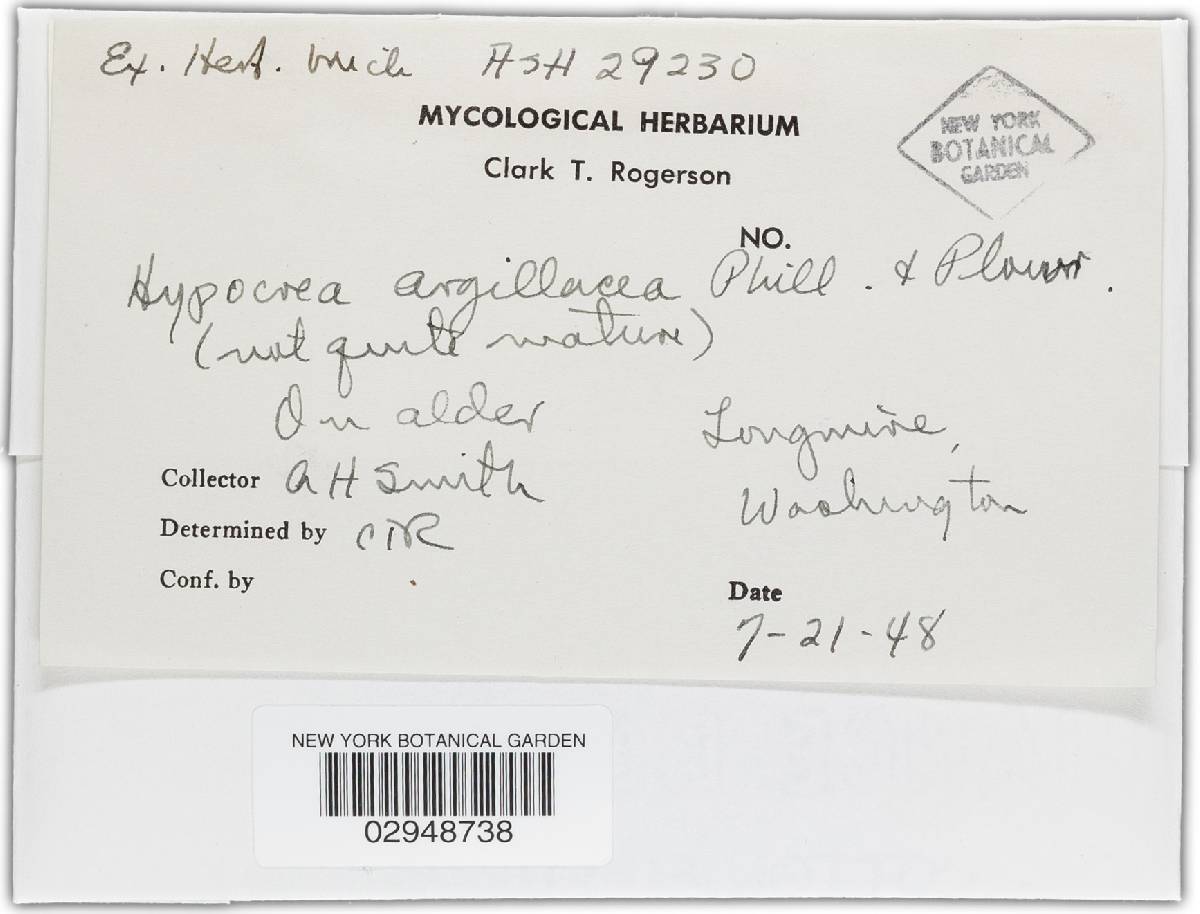 Ex. Herb. Mich AHS 29230
MYCOLOGICAL HERBARIUM
Clark T. Rogerson
NEW YORK
BOTANICAL
GARDEN
NO.
Hypocrea argillacea Phill. & Plowr.
(not quite mature)
On alder
Longmire,
Washington
Collector A H Smith
Determined by CTR
Conf. by
Date
7-21-48
NEW YORK BOTANICAL GARDEN
02948738